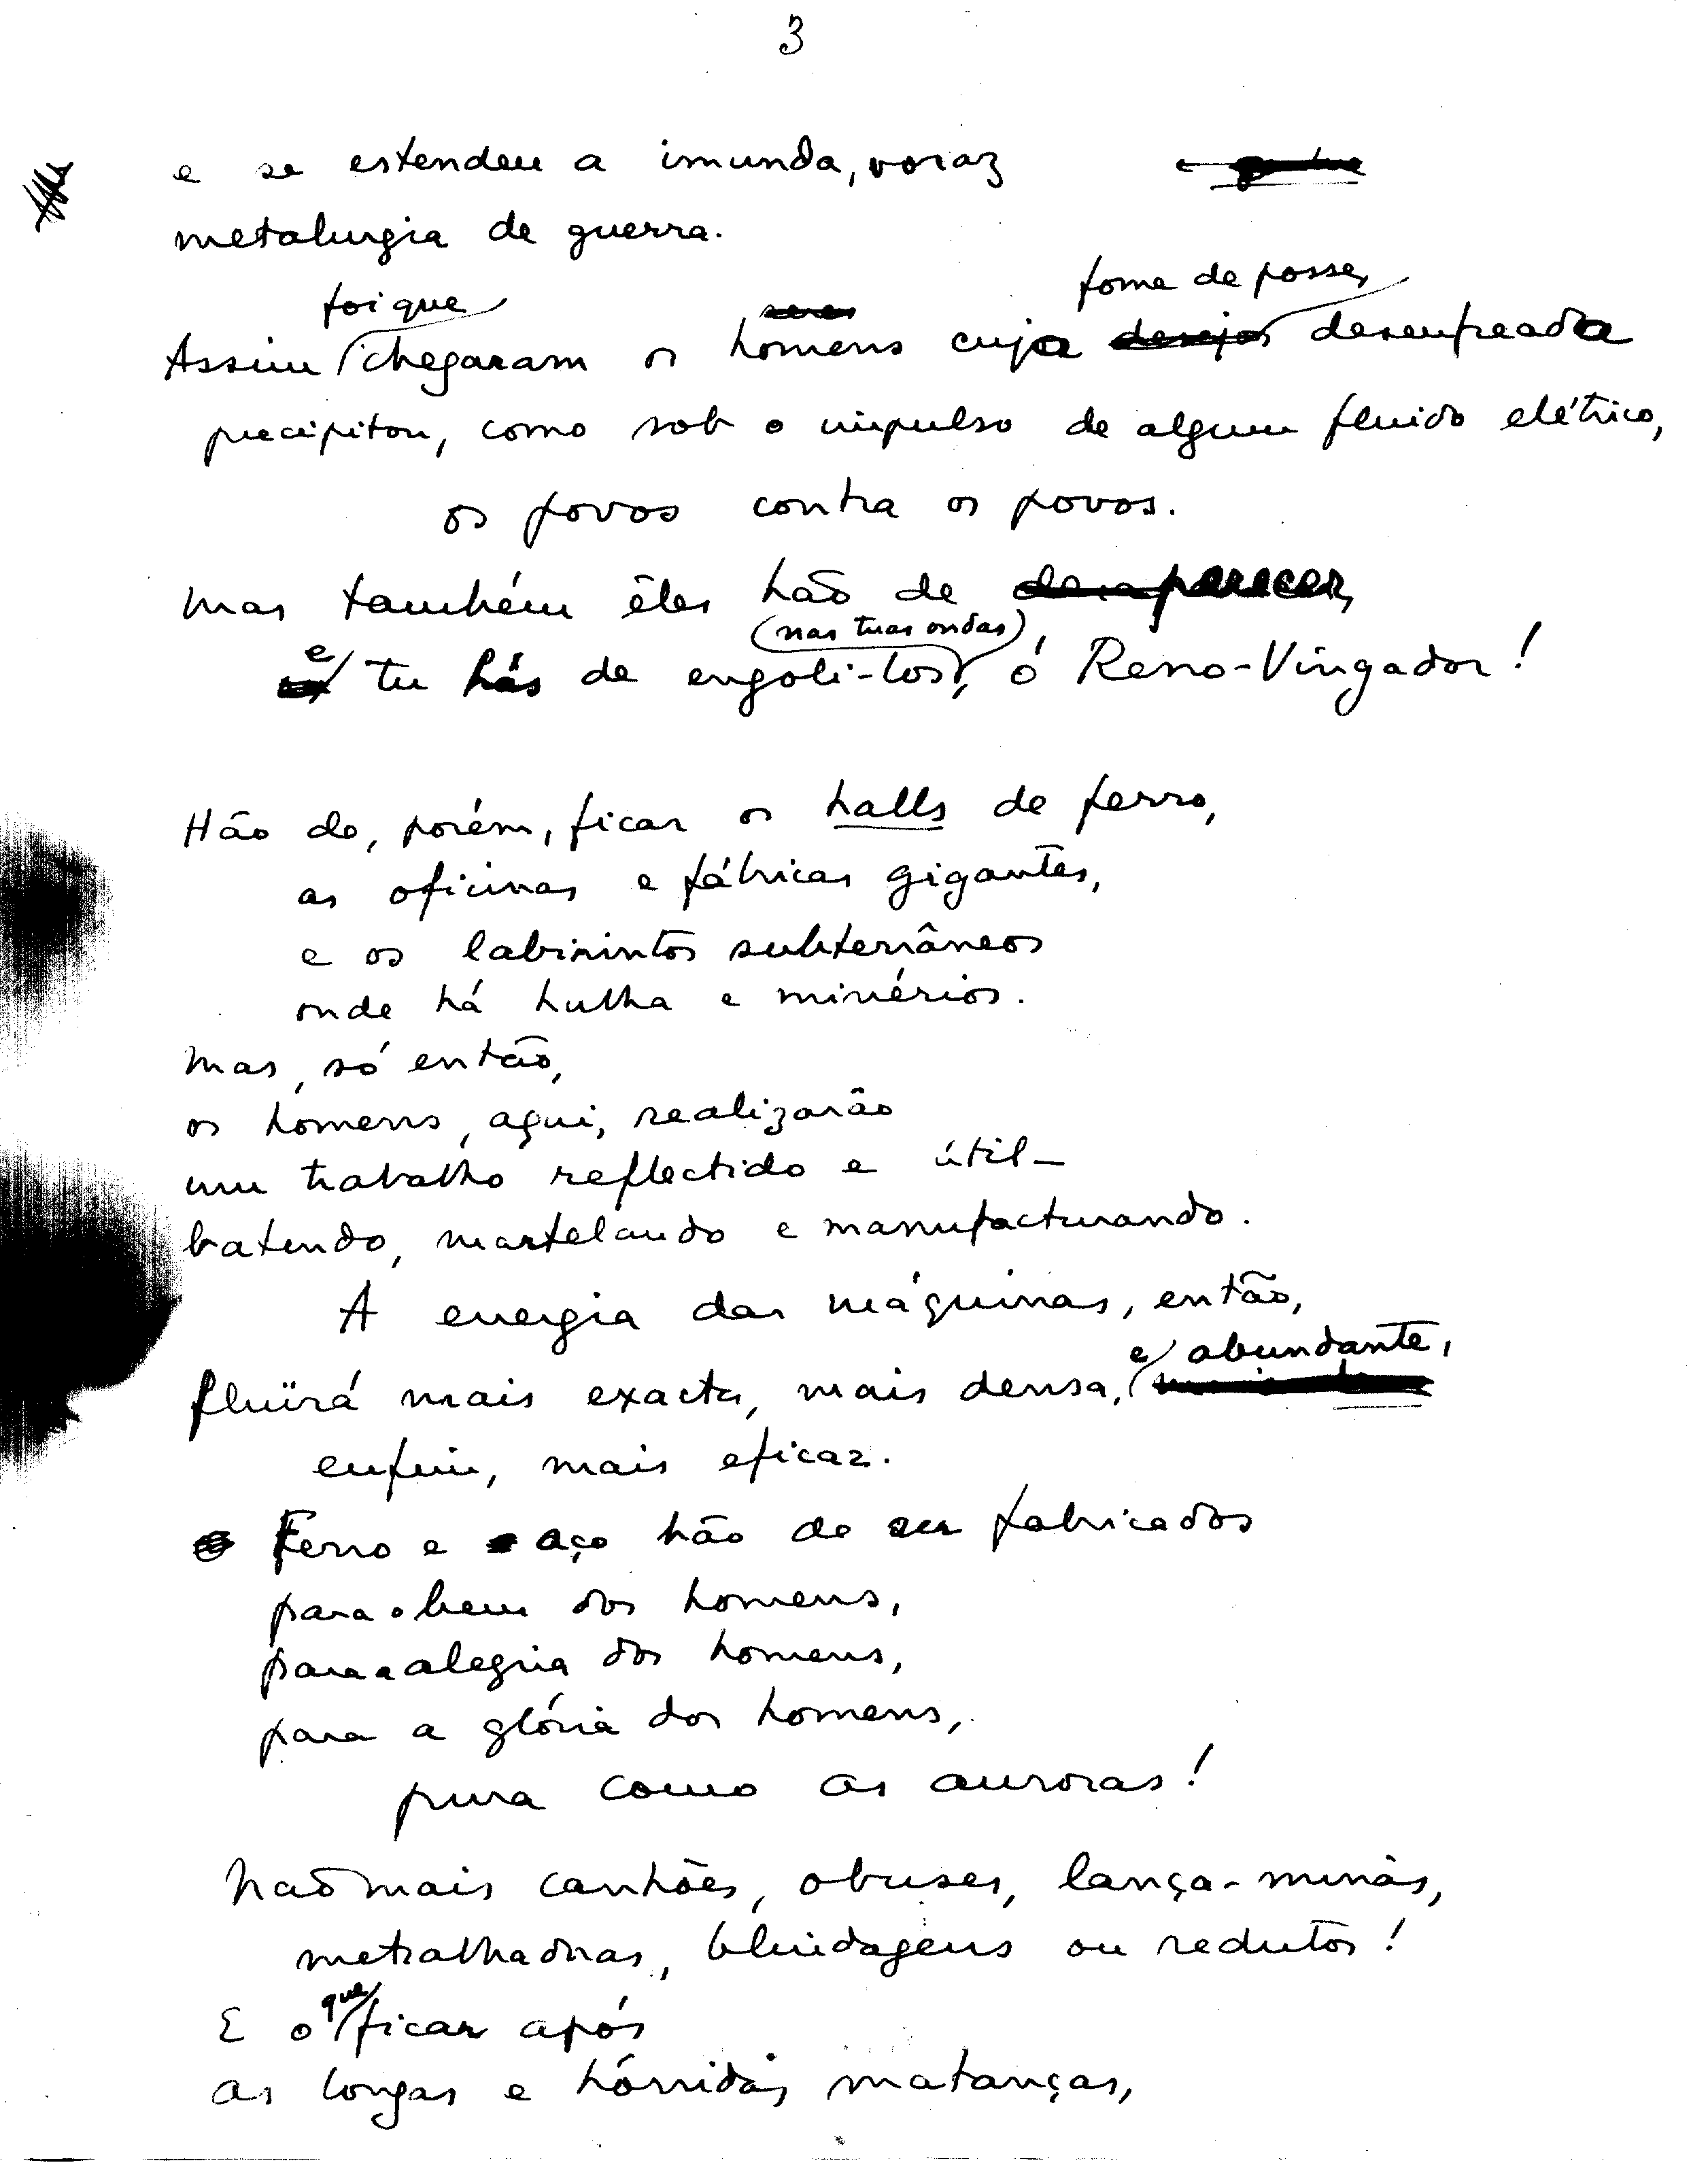 3
e se estendeu a imunda, voraz
metalurgia de guerra.
foi que fome de posse,
Assim chegaram os homens cuja desenfreada
precipitou, como sob o impulso de algum fluido elétrico,
os povos contra os povos.
Mas também êles hão de desaparecer,
(nas tuas ondas),
e tu hás de engoli-los, ó Reno-Vingador!
Hão de, porém, ficar os halls de ferro,
as oficinas e fábricas gigantes,
e os labirintos subterrâneos
onde há hulha e minérios.
Mas, só então,
os homens, aqui, realizarão
um trabalho reflectido e útil-
batendo, martelando e manufacturando.
A energia das máquinas, então,
e abundante,
fluïrá mais exacta, mais densa,
enfim, mais eficaz.
Ferro e aço hão de ser fabricados
para o bem dos homens,
para a alegria dos homens,
para a glória dos homens,
pura como as auroras!
Não mais canhões, obuses, lança-minas,
metralhadoras, blindagens ou redutos!
que
E o ficar após
as longas e hórridas matanças,